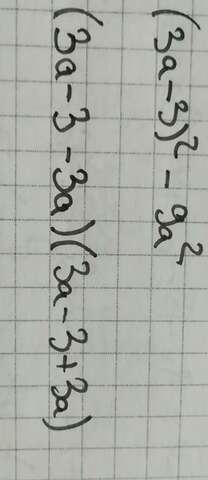 (3a-3)² - 9a²
(3a-3-3a)(3a-3+3a)